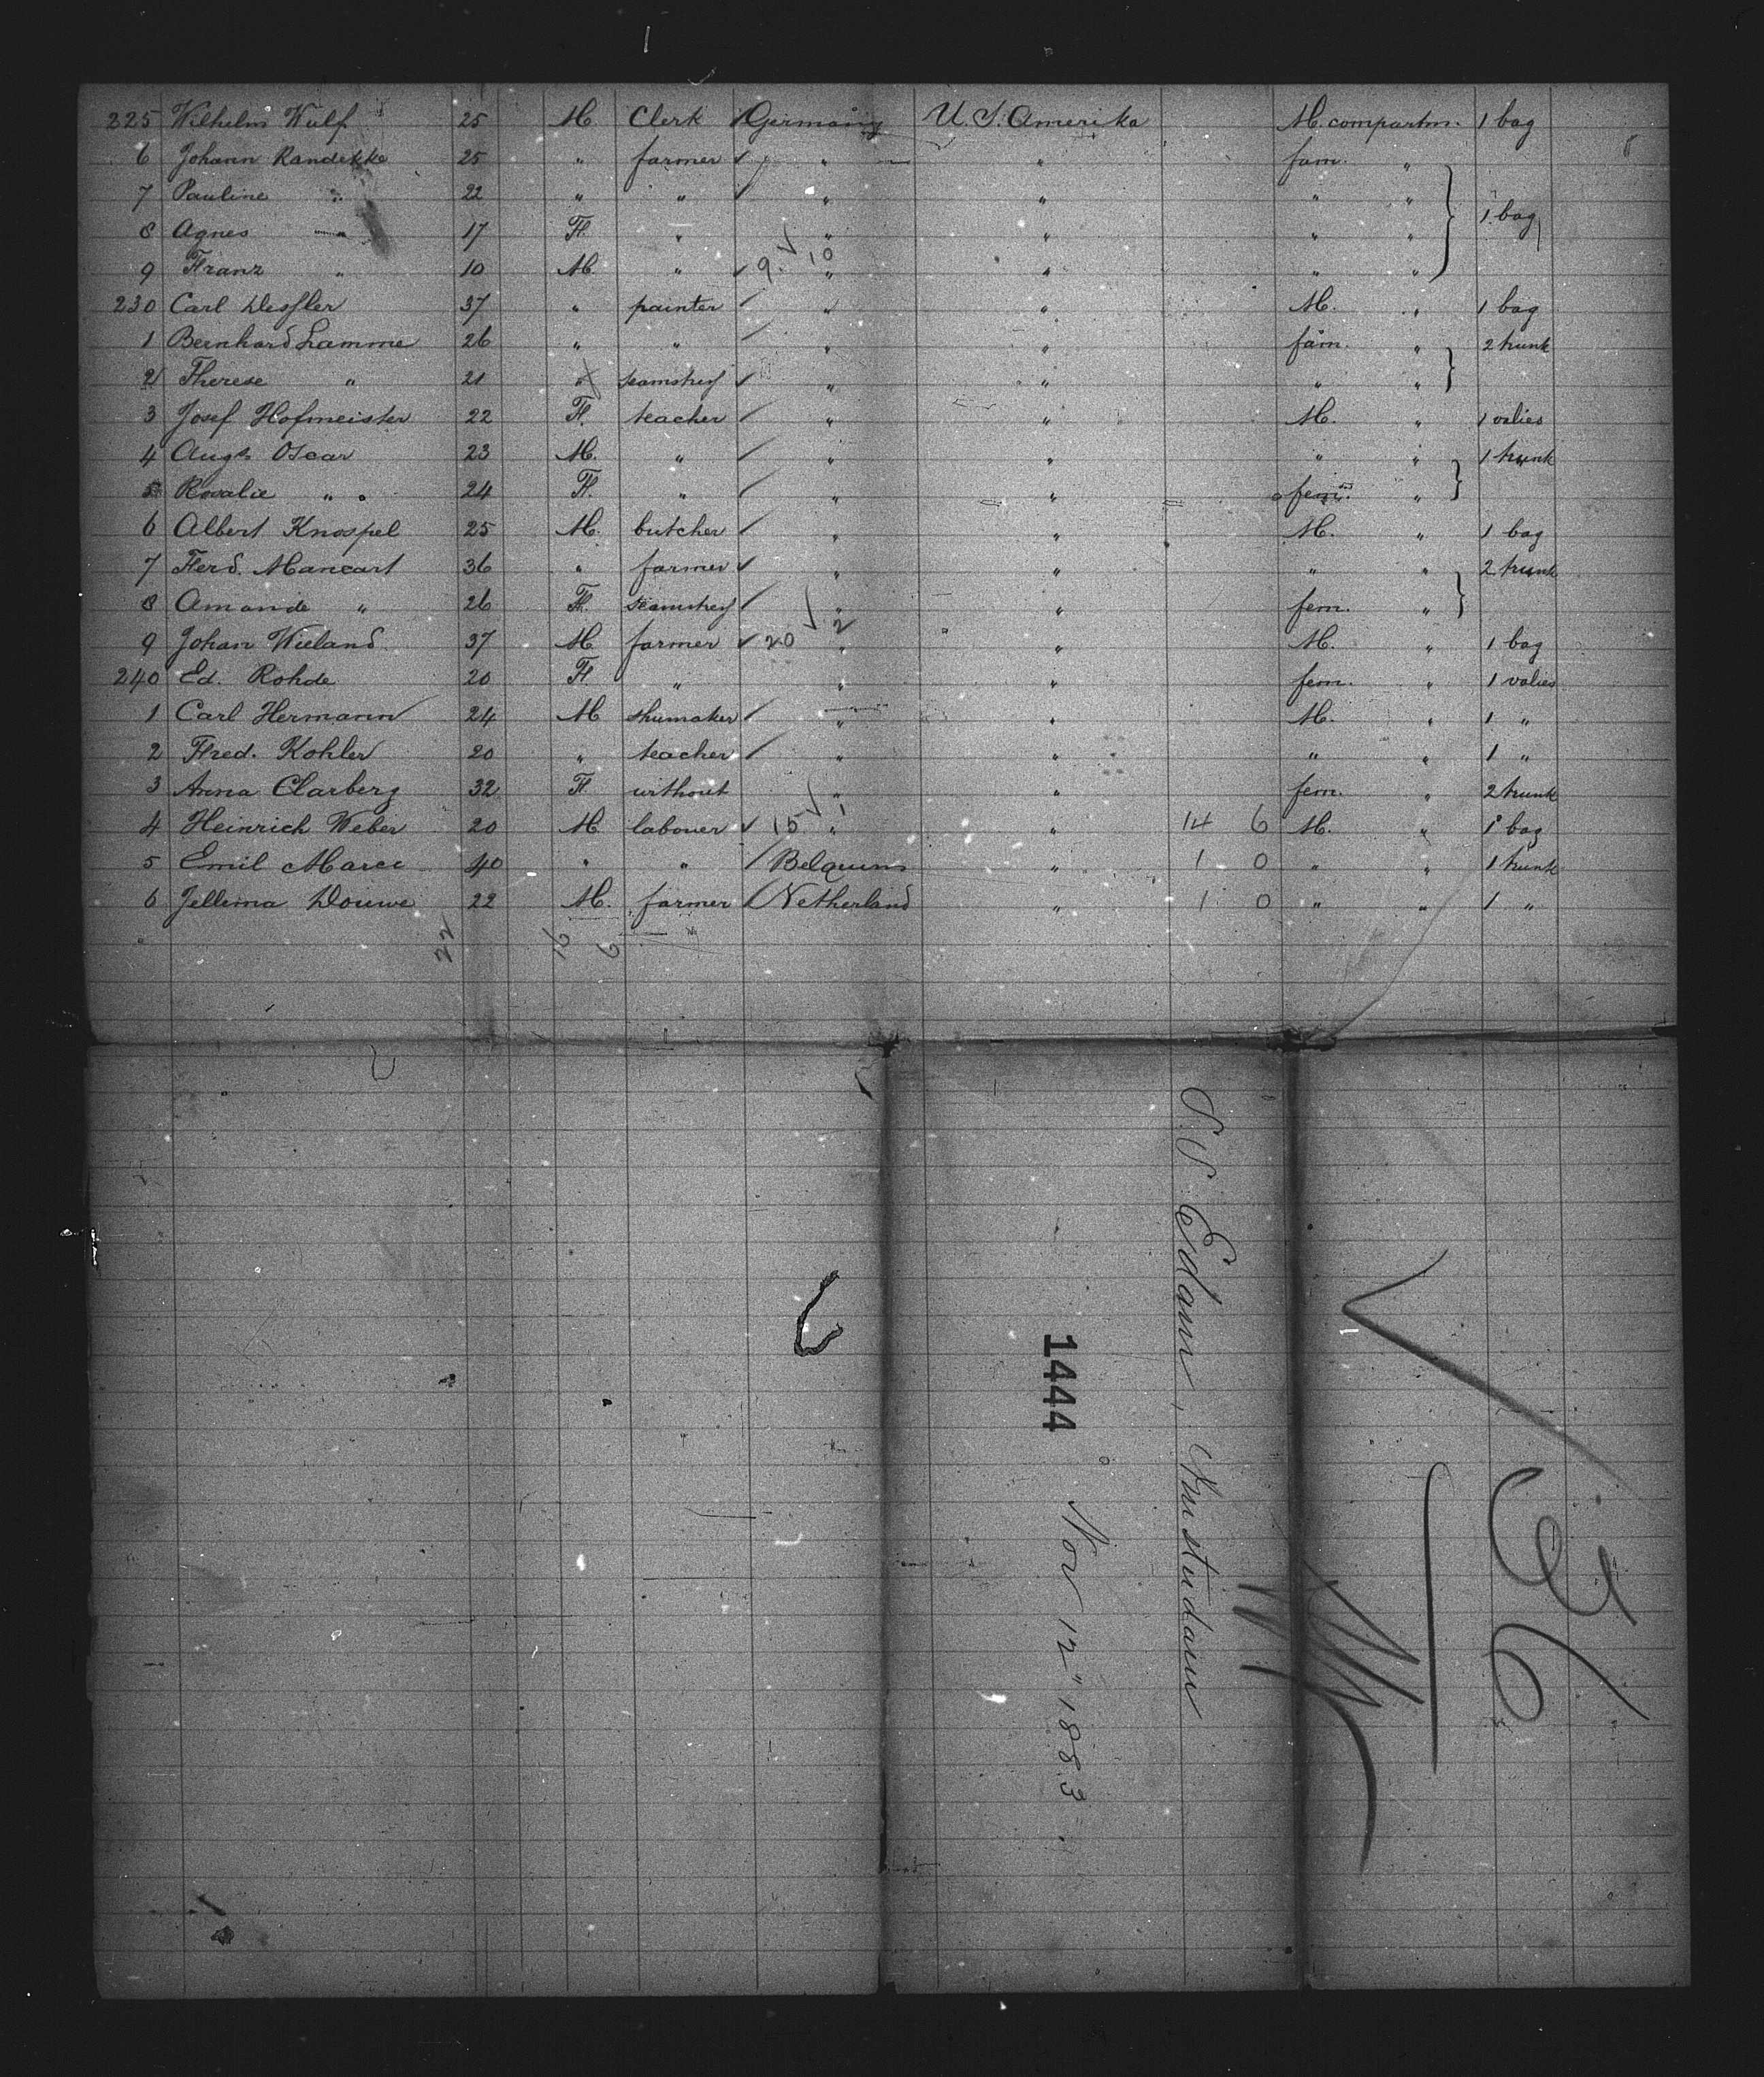 225 Wilhelm Wulf 25 M. Clerk Germany U. S. Amerika M. compartm. 1 bag
6 Johann Randekke 25 " farmer " " fam. "
7 Pauline " 22 " " " " " "
8 Agnes " 17 F. " " " " " 1 bag
9 Franz " 10 M. " 9 10 " " " "
230 Carl Dessler 37 " painter " " M. " 1 bag
1 Bernhard Lamme 26 " " " " fam. " 2 trunk
2 Therese " 21 " seamstress " " " "
3 Josef Hofmeister 22 F. teacher " " M. " 1 valies
4 Augt. Oscar 23 M. " " " " " 1 trunk
5 Rosalie " 24 F. " " " fem. "
6 Albert Knospel 25 M. butcher " " M. " 1 bag
7 Ferd. Mancart 36 " farmer " " " " 2 trunk
8 Amande " 26 F. seamstress " " fem. "
9 Johan Wieland 37 M farmer 20 2 " " M. " 1 bag
240 Ed. Rohde 20 F. " " " fem. " 1 valies
1 Carl Hermann 24 M shumaker " " M. " 1 "
2 Fred. Kohler 20 " teacher " " " " 1 "
3 Anna Clarberg 32 F. without " " fem. " 2 trunk
4 Heinrich Weber 20 M. labouer 15 1 " " 14 6 M. " 1 bag
5 Emil Marce 40 " " Belgeum " 1 0 " " 1 trunk
6 Jellema Douwe 22 M. farmer Netherland " 1 0 " " 1 "
22 16 6
S. S. Edam, Amsterdam
1444 Nov 12" 1883